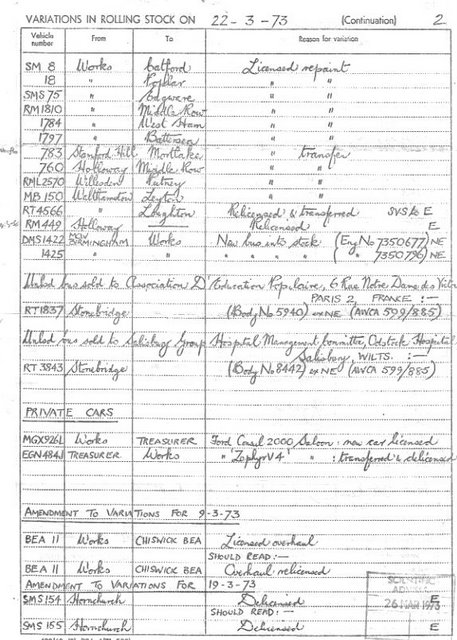 VARIATIONS IN ROLLING STOCK ON 22-3-73 (Continuation) 2
Vehicle number From To Reason for variation
SM 8 Works Catford Licensed repaint
18 " Poplar " "
SMS 75 " Edgware " "
RM 1810 " Middle Row " "
1784 " West Ham " "
1797 " Battersea " "
783 Stamford Hill Mortlake " transfer
760 Holloway Middle Row " "
RML 2570 Willesden Putney " "
MB 150 Walthamstow Leyton " "
RT 4566 " Loughton Relicensed & transferred SVS to E
RM 449 Holloway — Relicensed E
DMS 1422 MCW BIRMINGHAM Works New bus into stock (Eng No 7350677) NE
1425 " " " " " " ( " 7350796) NE
Unlicd bus sold to Association D'Education Populaire, 6 Rue Notre Dame des
PARIS 2, FRANCE :—
RT 1837 Stonebridge (Body No 5940) ex NE (AWCA 599/885)
Unlicd bus sold to Salisbury Group Hospital Management Committee, Odstock Hospital
Salisbury, WILTS. :—
RT 3843 Stonebridge (Body No 8442) ex NE (AWCA 599/885)
PRIVATE CARS
MGX 926L Works TREASURER Ford Consul 2000 Saloon : new car licensed
EGN 484J TREASURER Works " 'Zephyr V4' " : transferred & delicensed
AMENDMENT TO VARIATIONS FOR 9-3-73
BEA 11 Works CHISWICK BEA Licensed overhaul
SHOULD READ :—
BEA 11 Works CHISWICK BEA Overhaul relicensed
AMENDMENT TO VARIATIONS FOR 19-3-73
SMS 154 Hornchurch Delicensed E
SHOULD READ :—
SMS 155 Hornchurch Delicensed E
26 MAR 1973